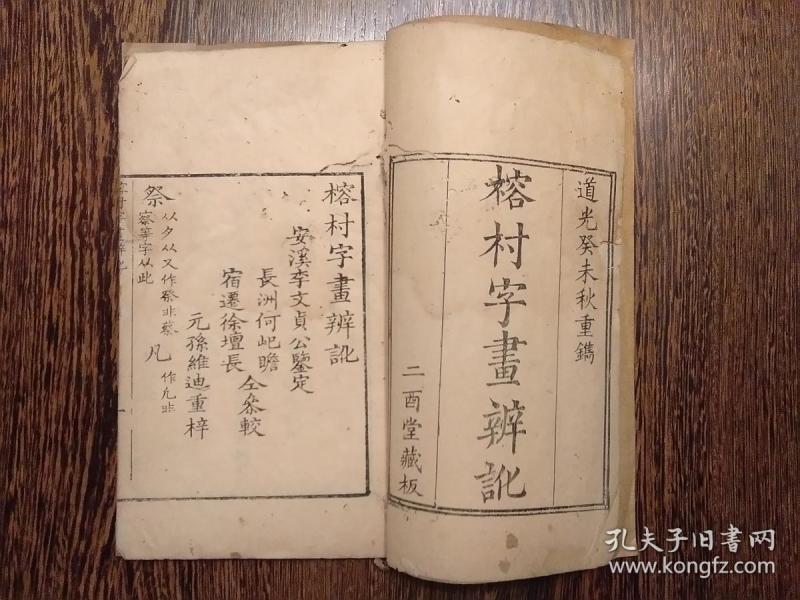 道光癸未秋重鐫
榕村字畫辨訛
二酉堂藏板
榕村字畫辨訛
安溪李文貞公鑒定
長洲何屺瞻
宿遷徐壇長
仝叅較
元孫維迪重梓
祭
从夕从又作祭非蔡
察等字从此
凡
作凢非
孔夫子旧书网
www.kongfz.com